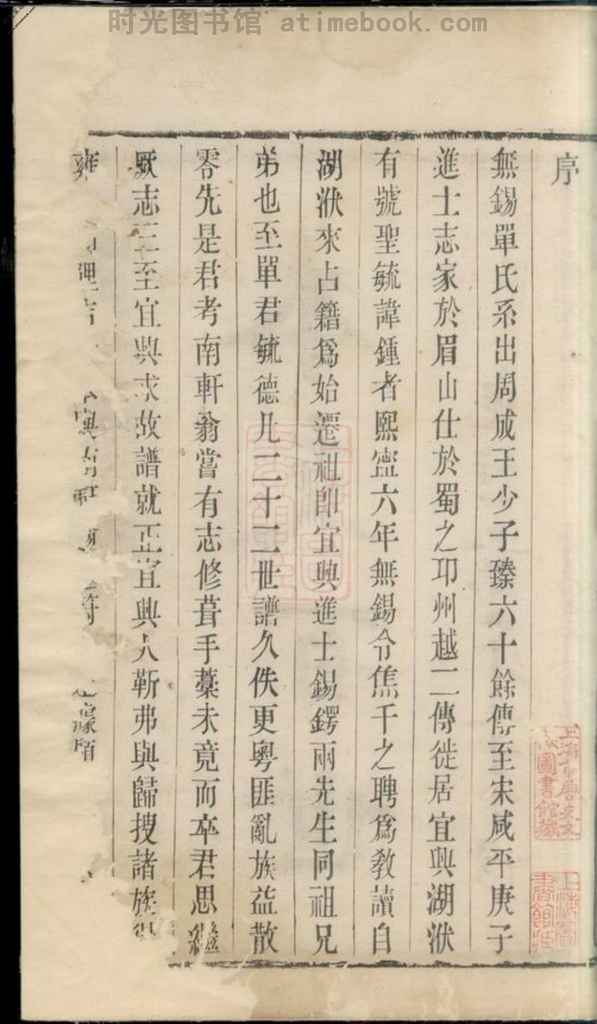 时光图书馆 - atimebook.com
序
無錫單氏系出周成王少子臻六十餘傳至宋咸平庚子
進士志家於眉山仕於蜀之邛州越二傳徙居宜興湖㳇
有號聖毓諱鍾者熙寧六年無錫令焦千之聘爲教讀自
湖㳇來占籍爲始遷祖即宜興進士錫鍔兩先生同祖兄
弟也至單君毓德凡二十二世譜久佚更粵匪亂族益散
零先是君考南軒翁嘗有志修葺手藁未竟而卒君思繼
厥志三至宜興求故譜就正宜興人靳弗與歸搜諸族